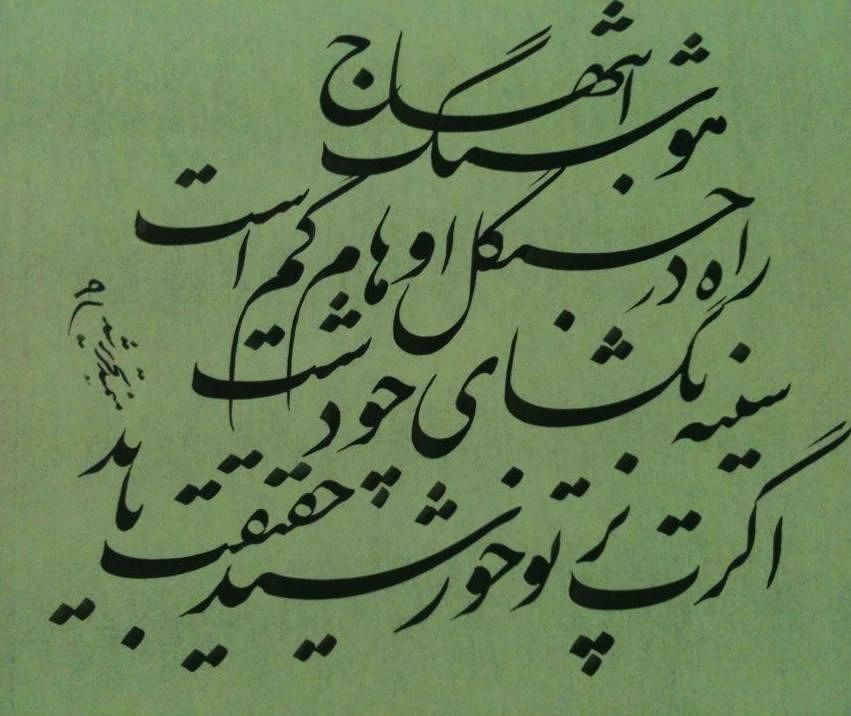 هوشنگ ابتهاج
راه در جنگل اوهام گم است
سینه بگشای چو دشت
اگرت پرتو خورشید حقیقت باید